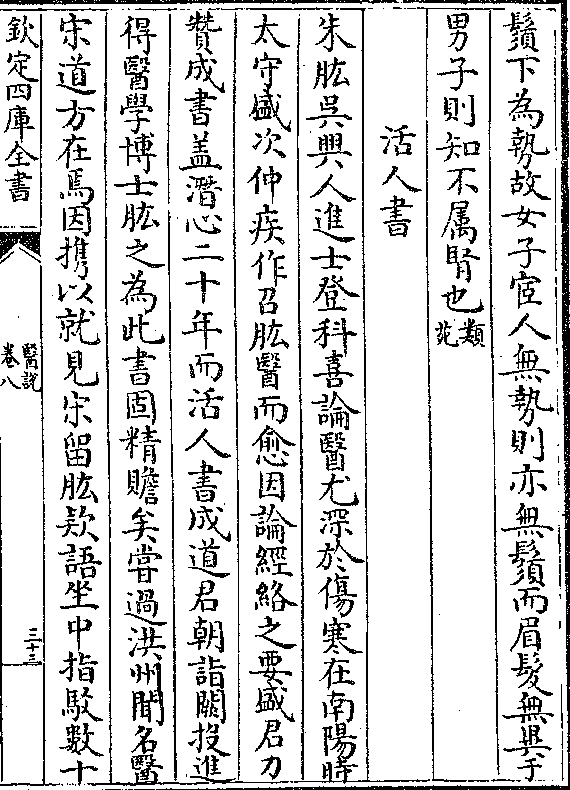 鬚下為勢故女子宦人無勢則亦無鬚而眉髮無異于
男子則知不属腎也類苑
活人書
朱肱吳興人進士登科喜論醫尤深於傷寒在南陽時
太守盛次仲疾作召肱醫而愈因論經絡之要盛君力
贊成書盖潛心二十年而活人書成道君朝詣闕投進
得醫學博士肱之為此書固精贍矣嘗過洪州聞名醫
宋道方在焉因攜以就見宋留肱欵語坐中指駁數十
欽定四庫全書
醫說
卷八
三十三